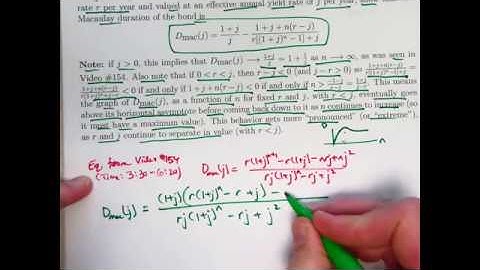 r per year and valued at an effective annual yield rate of j per year,
Macaulay duration of the bond is
D_mac(j) = (1 + j)/j − (1 + j + n(r − j))/(r[(1 + j)^n − 1] + j)
Note: if j > 0, this implies that D_mac(j) → (1+j)/j = 1 + 1/j as n → ∞, as was seen in
Video #154. Also note that if 0 < r < j, then r − j < 0 (and j − r > 0) so
< 0 if and only if 1 + j + n(r − j) < 0 if and only if n > This means
the graph of D_mac(j), as a function of n for fixed r and j, with r < j, eventually goes
above its horizontal asymptote before going back down to it as n continues to increase (so
it must have a maximum value). This behavior gets more "pronounced" (or "extreme").
as r and j continue to separate in value (with r < j).
n
Eq. from Video #154
(Time: 3:30 – 6:20)
D_mac(j) = (r(1+j)^{n+1} − r(1+j) − nrj + nj^2)/(rj(1+j)^n − rj + j^2)
D_mac(j) = ((1+j)(r(1+j)^n − r + j) −)/(rj(1+j)^n − rj + j^2)